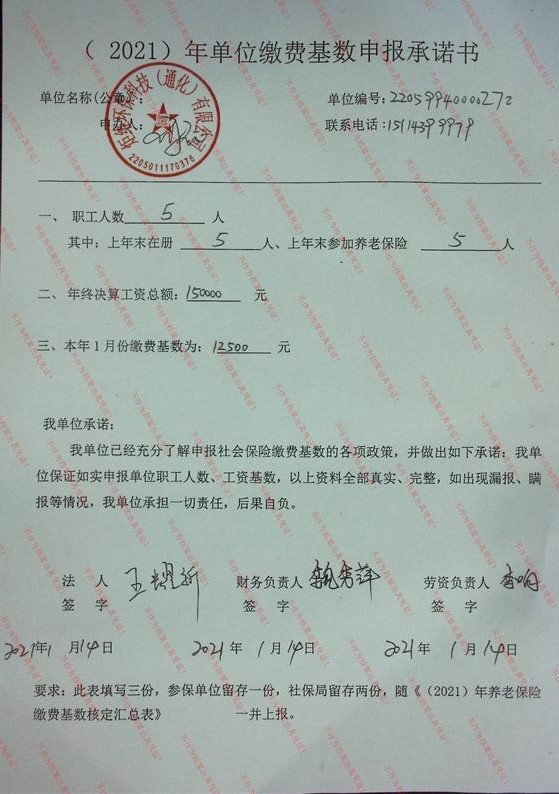 （ 2021）年单位缴费基数申报承诺书
单位名称(公章)：
单位编号：22059940000272
申办人：
联系电话：15143999979
环保科技（通化）有限公司
2205011170376
一、 职工人数 5 人
其中：上年末在册 5 人、上年末参加养老保险 5 人
二、 年终决算工资总额：150000 元
三、本年 1 月份缴费基数为：12500 元
我单位承诺：
我单位已经充分了解申报社会保险缴费基数的各项政策，并做出如下承诺：我单
位保证如实申报单位职工人数、工资基数，以上资料全部真实、完整，如出现漏报、瞒
报等情况，我单位承担一切责任，后果自负。
法 人 王耀新 财务负责人 劳资负责人 李响
签 字 签 字 签 字
2021年1 月14日 2021 年 1 月 14日 2021 年 1 月 14日
要求：此表填写三份，参保单位留存一份，社保局留存两份，随《（2021）年养老保险
缴费基数核定汇总表》 一并上报。